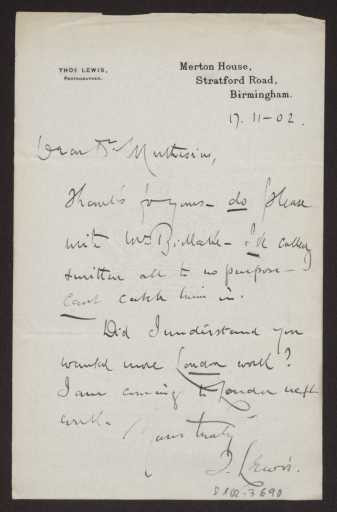 THOS LEWIS,
PHOTOGRAPHER.
Merton House,
Stratford Road,
Birmingham.
17.11-02.
Dear Dr Muthesius,
Thanks for yours - do please
write Mr - I've called
& written all to no purpose -
Can't catch him in.
Did I understand you
wanted more London work?
I am coming to London next
week.
Yours truly
T. Lewis.